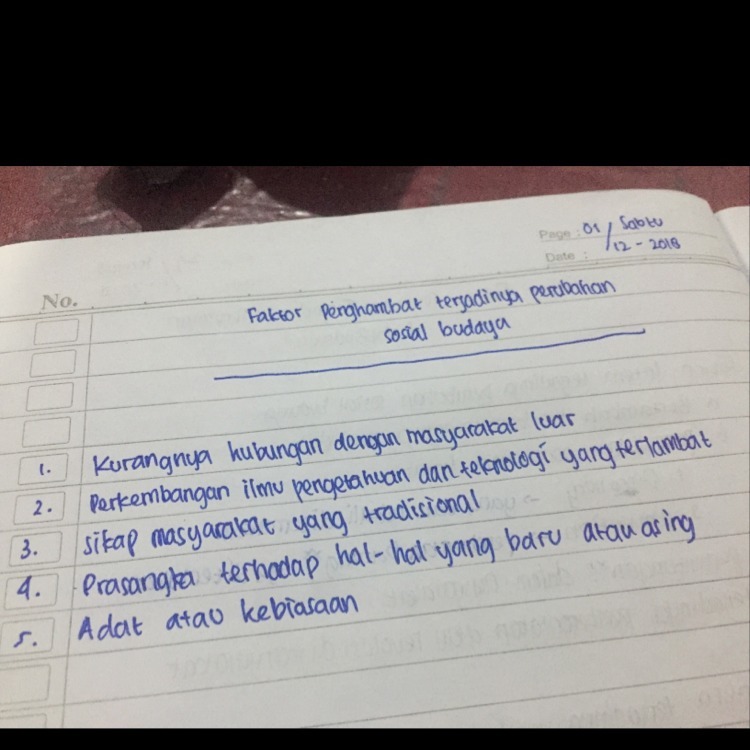 Page : 01 / Sabtu
Date : 12 - 2018
No.
Faktor Penghambat terjadinya perubahan
sosial budaya
1. Kurangnya hubungan dengan masyarakat luar
2. Perkembangan ilmu pengetahuan dan teknologi yang terlambat
3. sikap masyarakat yang tradisional
4. Prasangka terhadap hal-hal yang baru atau asing
5. Adat atau kebiasaan